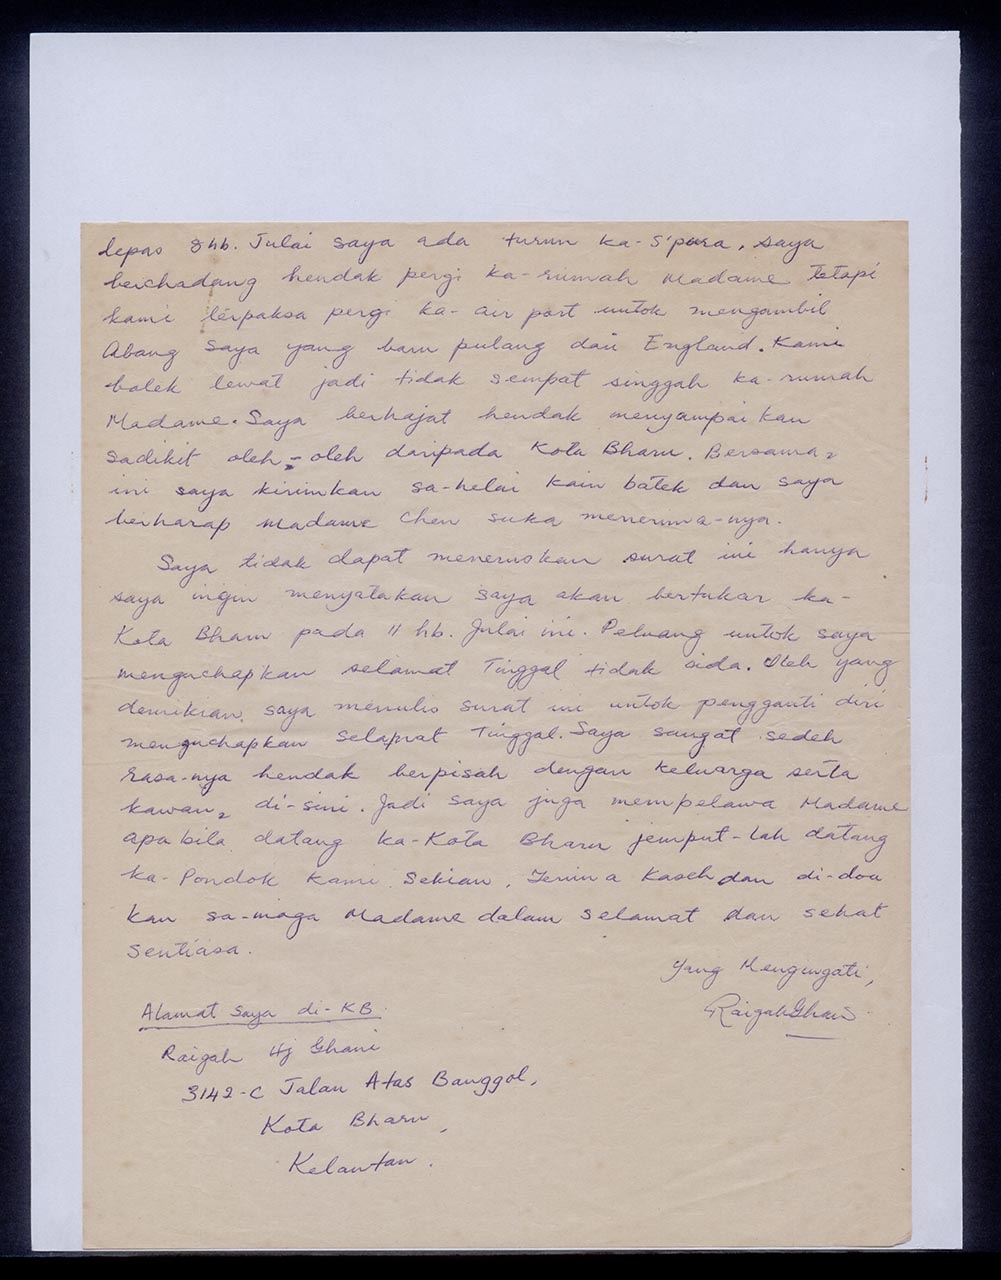 lepas 8 hb. Julai saya ada turun ka-S'pura, saya
berchadang hendak pergi ka-rumah Madame tetapi
kami terpaksa pergi ka-air port untok mengambil
Abang saya yang baru pulang dari England. Kami
balek lewat jadi tidak sempat singgah ka-rumah
Madame. Saya berhajat hendak menyampaikan
sadikit oleh-oleh daripada Kota Bharu. Bersama2
ini saya kirimkan sa-helai kain batek dan saya
berharap Madame Chen suka menerima-nya.
Saya tidak dapat meneruskan surat ini hanya
saya ingin menyatakan saya akan bertukar ka-
Kota Bharu pada 11 hb. Julai ini. Peluang untok saya
menguchapkan selamat Tinggal tidak ada. Oleh yang
demikian saya menulis surat ini untok pengganti diri
menguchapkan Selamat Tinggal. Saya sangat sedeh
rasa-nya hendak berpisah dengan keluarga serta
kawan2 di-sini. Jadi saya juga mempelawa Madame
apabila datang ka-Kota Bharu jemput-lah datang
ka-Pondok kami. Sekian, Terima Kaseh dan di-doa
kan sa-moga Madame dalam selamat dan sehat
sentiasa.
Yang Mengingati,
Raigah Ghani
Alamat saya di-KB.
Raigah Hj Ghani
3142-C Jalan Atas Banggol,
Kota Bharu,
Kelantan.